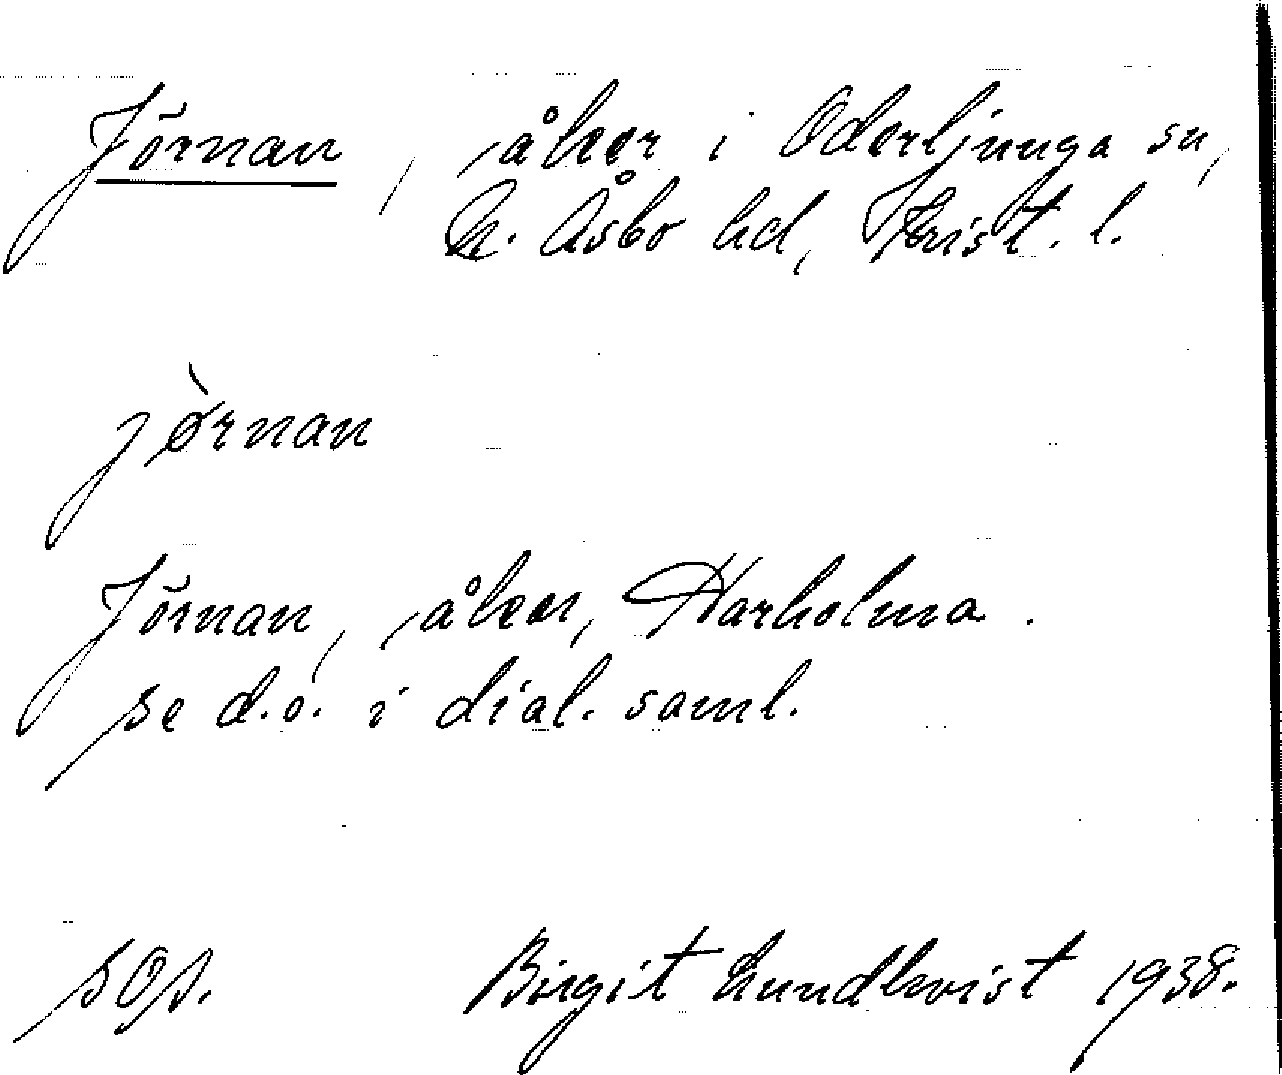 Jörnan, åker i Oderljunga sn,
N. Åsbo hd, Krist. l.
jø̀rnan
Jörnan, åker, Harholma.
se d.o. i dial. saml.
sOp. Birgit Lundkvist 1938.